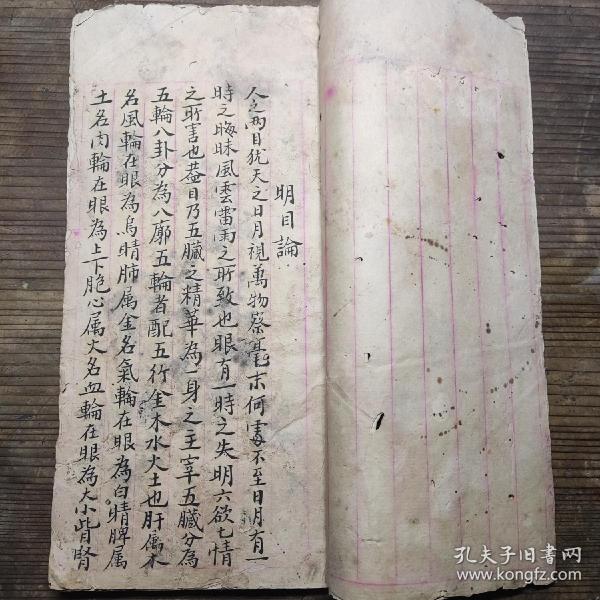 明目論
人之两目犹天之日月視萬物察毫末何處不至日月有一
時之晦昧風雲雷雨之所致也眼有一時之失明六欲七情
之所害也蓋目乃五臟之精華為一身之主宰五臟分為
五輪八卦分為八廓五輪者配五行金木水火土也肝属木
名風輪在眼為烏睛肺属金名氣輪在眼為白睛脾属
土名肉輪在眼為上下胞心属火名血輪在眼為大小眥腎
孔夫子旧書网
www.kongfz.com